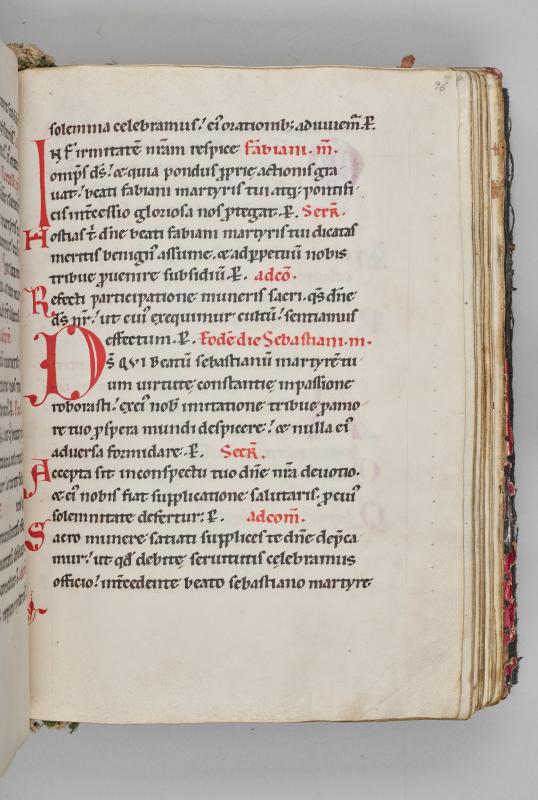 96
solemnia celebramus! ei' orationib; adiuuem̄. P.
INFirmitatē nr̄am respice Fabiani. m̄.
omīps ds̄! & quia pondus p̱prię actionis gra
uat! beati fabiani martyris tui atq; pontifi
cis int̄cessio gloriosa nos p̱tegat. P. Secr̄.
Hostias t̄ dn̄e beati fabiani martyris tui dicatas
meritis benign' assume. & adp̱petuū nobis
tribue p̱uenire subsidiū. P. adcō.
Refecti participatione muneris sacri. qs̄ dn̄e
ds̄ nr̄! ut cui' exequimur cultū! sentiamus
effectum. P. Eodē die Sebastiani. m.
Ds̄ QVI Beatū sebastianū martyrē tu
um uirtute constantię inpassione
roborasti! exei' nob̄ imitatione tribue p̱ amo
re tuo p̱spera mundi despicere! & nulla ei'
aduersa formidare. P. Secr̄.
Accepta sit inconspectu tuo dn̄e nr̄a deuotio.
& ei' nobis fiat supplicatione salutaris. p̱ cui'
solemnitate defertur. P. adcom̄.
Sacro munere satiati supplices te dn̄e dep̄ca
mur! ut qd̄ debitę seruitutis celebramus
officio! int̄cedente beato sebastiano martyre